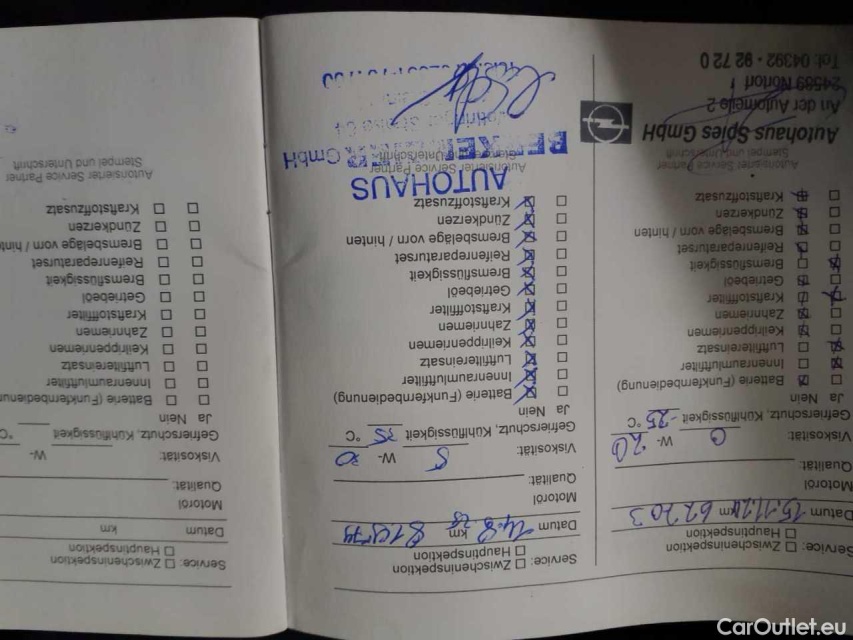 Service: Zwischeninspektion
Hauptinspektion
Datum 15.11.21 km 62703
Motoröl
Qualität:
Viskosität: 0 W- 20
Gefrierschutz, Kühlflüssigkeit -25 °C
Ja Nein
Batterie (Funkfernbedienung)
Innenraumluftfilter
Luftfiltereinsatz
Keilrippenriemen
Zahnriemen
Kraftstofffilter
Getriebeöl
Bremsflüssigkeit
Reifenreparaturset
Bremsbeläge vorn / hinten
Zündkerzen
Kraftstoffzusatz
Autorisierter Service Partner
Stempel und Unterschrift
Autohaus Spies GmbH
An der Automeile 2
24589 Nortorf
Tel: 04392 - 92 72 0
Service: Zwischeninspektion
Hauptinspektion
Datum 14.8 km
Motoröl
Qualität:
Viskosität: 5 W- 30
Gefrierschutz, Kühlflüssigkeit 35 °C
Ja Nein
Batterie (Funkfernbedienung)
Innenraumluftfilter
Luftfiltereinsatz
Keilrippenriemen
Zahnriemen
Kraftstofffilter
Getriebeöl
Bremsflüssigkeit
Reifenreparaturset
Bremsbeläge vorn / hinten
Zündkerzen
Kraftstoffzusatz
AUTOHAUS
Autorisierter Service Partner
Stempel und Unterschrift
GmbH
Service: Zwischeninspektion
Hauptinspektion
Datum km
Motoröl
Qualität:
Viskosität: W-
Gefrierschutz, Kühlflüssigkeit °C
Ja Nein
Batterie (Funkfernbedienun
Innenraumluftfilter
Luftfiltereinsatz
Keilrippenriemen
Zahnriemen
Kraftstofffilter
Getriebeöl
Bremsflüssigkeit
Reifenreparaturset
Bremsbeläge vorn / hint
Zündkerzen
Kraftstoffzusatz
Autorisierter Service Partner
Stempel und Unterschrift
CarOutlet.eu